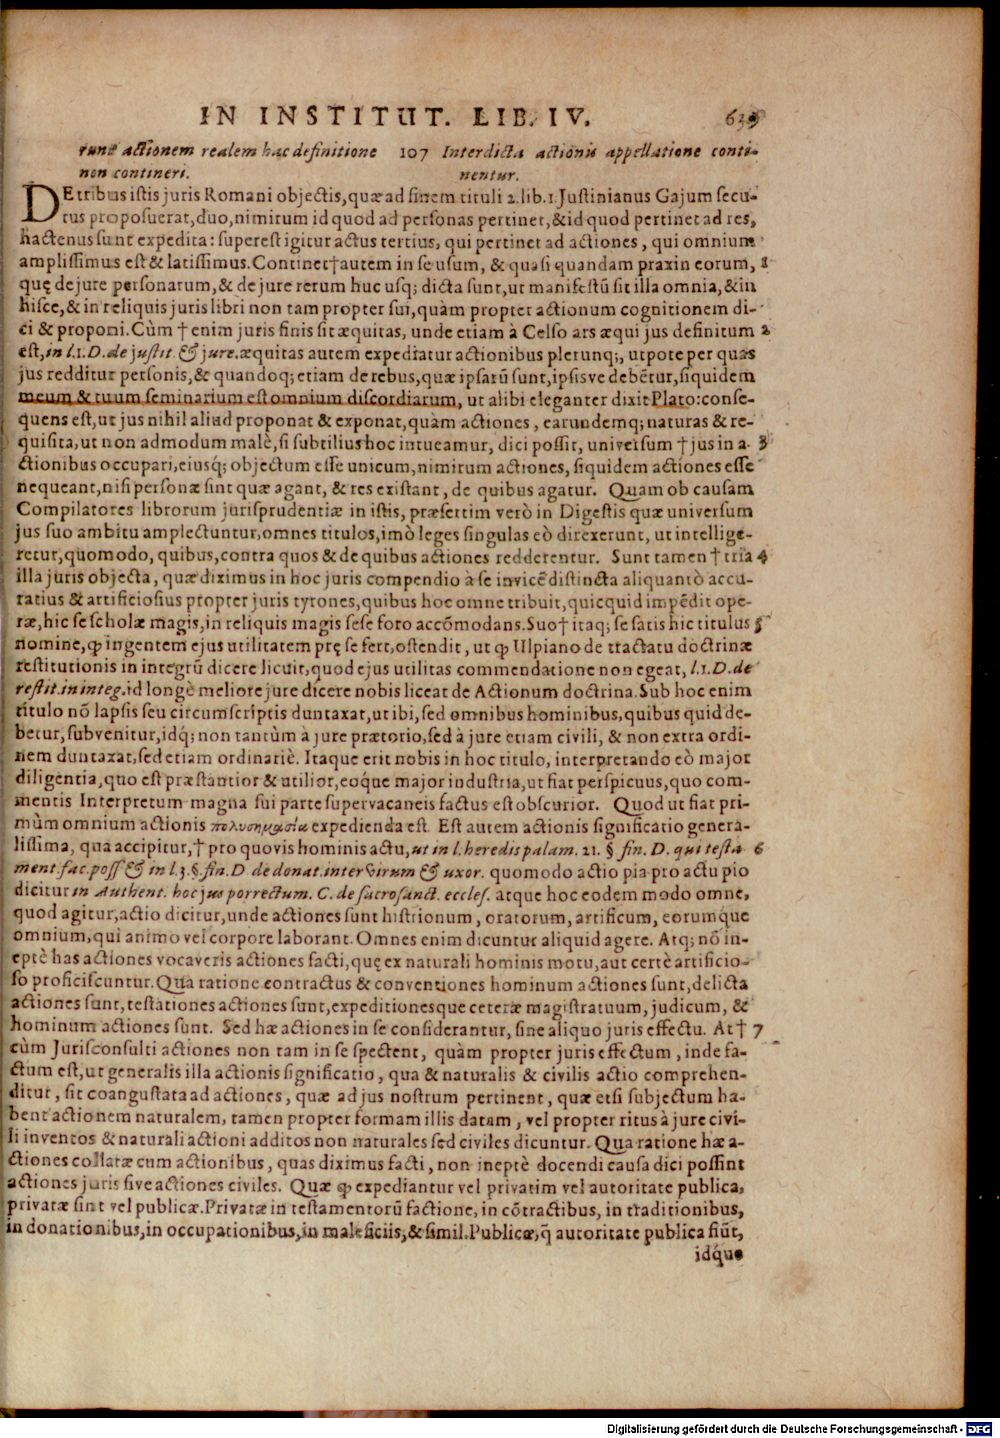 IN INSTITUT. LIB. IV. 639
runt actionem realem hac definitione
non contineri.
107 Interdicta actionis appellatione conti-
nentur.
DE tribus istis juris Romani objectis, quæ ad finem tituli 2. lib. 1. Justinianus Gajum secu-
tus proposuerat, duo, nimirum id quod ad personas pertinet, & id quod pertinet ad res,
hactenus sunt expedita: superest igitur actus tertius, qui pertinet ad actiones, qui omnium
amplissimus est & latissimus. Continet † autem in se usum, & quasi quandam praxin eorum, 1
quę de jure personarum, & de jure rerum huc usq; dicta sunt, ut manifestū sit illa omnia, & in
hisce, & in reliquis juris libri non tam propter sui, quàm propter actionum cognitionem di-
ci & proponi. Cùm † enim juris finis sit æquitas, unde etiam à Celso ars æqui jus definitum 2
est, in l. 1. D. de justit. & jure. æquitas autem expediatur actionibus plerunq;, utpote per quas
jus redditur personis, & quandoq; etiam de rebus, quæ ipsarū sunt, ipsisve debētur, siquidem
meum & tuum seminarium est omnium discordiarum, ut alibi eleganter dixit Plato: conse-
quens est, ut jus nihil aliud proponat & exponat, quàm actiones, earundemq; naturas & re-
quisita, ut non admodum malè, si subtilius hoc intueamur, dici possit, universum † jus in a- 3
ctionibus occupari, eiusq; objectum esse unicum, nimirum actiones, siquidem actiones esse
nequeant, nisi personæ sint quæ agant, & res existant, de quibus agatur. Quam ob causam
Compilatores librorum jurisprudentiæ in istis, præsertim verò in Digestis quæ universum
jus suo ambitu amplectuntur, omnes titulos, imò leges singulas eò direxerunt, ut intellige-
retur, quomodo, quibus, contra quos & de quibus actiones redderentur. Sunt tamen † tria 4
illa juris objecta, quæ diximus in hoc juris compendio à se invicē distincta aliquantò accu-
ratius & artificiosius propter juris tyrones, quibus hoc omne tribuit, quicquid impēdit ope-
ræ, hic se scholæ magis, in reliquis magis sese foro accōmodans. Suo † itaq; se satis hic titulus 5
nomine, ꝙ ingentem ejus utilitatem prę se fert, ostendit, ut ꝙ Ulpiano de tractatu doctrinæ
restitutionis in integrū dicere licuit, quod ejus utilitas commendatione non egeat, l. 1. D. de
restit. in integ. id longè meliore jure dicere nobis liceat de Actionum doctrina. Sub hoc enim
titulo nō lapsis seu circumscriptis duntaxat, ut ibi, sed omnibus hominibus, quibus quid de-
betur, subvenitur, idq; non tantùm à jure prætorio, sed à jure etiam civili, & non extra ordi-
nem duntaxat, sed etiam ordinariè. Itaque erit nobis in hoc titulo, interpretando eò major
diligentia, quo est præstantior & utilior, eoq́ue major industria, ut fiat perspicuus, quo com-
mentis Interpretum magna sui parte supervacaneis factus est obscurior. Quod ut fiat pri-
mùm omnium actionis πολυσημασία expedienda est. Est autem actionis significatio genera-
lissima, qua accipitur, † pro quovis hominis actu, ut in l. heredis palam. 21. § fin. D. qui testa 6
ment. fac. poss & in l. 3. § fin. D de donat. inter virum & uxor. quomodo actio pia pro actu pio
dicitur in Authent. hoc jus porrectum. C. de sacrosanct. eccles. atque hoc eodem modo omne,
quod agitur, actio dicitur, unde actiones sunt histrionum, oratorum, artificum, eorumq́ue
omnium, qui animo vel corpore laborant. Omnes enim dicuntur aliquid agere. Atq; nō in-
eptè has actiones vocaveris actiones facti, quę ex naturali hominis motu, aut certè artificio-
so proficiscuntur. Qua ratione contractus & conventiones hominum actiones sunt, delicta
actiones sunt, testationes actiones sunt, expeditionesque ceteræ magistratuum, judicum, &
hominum actiones sunt. Sed hæ actiones in se considerantur, sine aliquo juris effectu. At † 7
cùm Jurisconsulti actiones non tam in se spectent, quàm propter juris effectum, inde fa-
ctum est, ut generalis illa actionis significatio, qua & naturalis & civilis actio comprehen-
ditur, sit coangustata ad actiones, quæ ad jus nostrum pertinent, quæ etsi subjectum ha-
bent actionem naturalem, tamen propter formam illis datam, vel propter ritus à jure civi-
li inventos & naturali actioni additos non naturales sed civiles dicuntur. Qua ratione hæ a-
ctiones collatæ cum actionibus, quas diximus facti, non ineptè docendi causa dici possint
actiones juris sive actiones civiles. Quæ ꝙ expediantur vel privatim vel autoritate publica,
privatæ sint vel publicæ. Privatæ in testamentorū factione, in cōtractibus, in traditionibus,
in donationibus, in occupationibus, in maleficiis, & simil. Publicæ, q̄ autoritate publica fiūt,
idq́ue
Digitalisierung gefördert durch die Deutsche Forschungsgemeinschaft - DFG